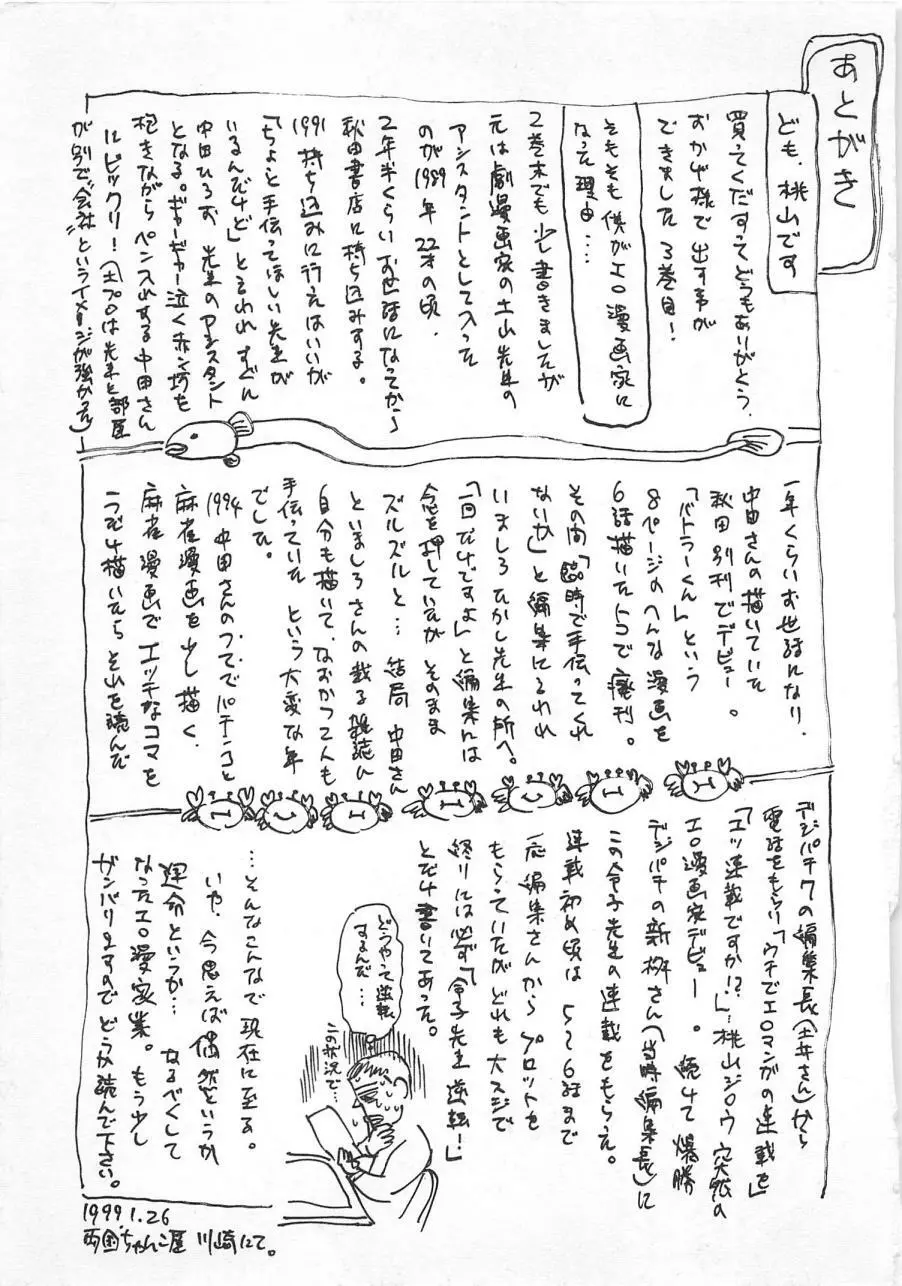 あとがき
ども、桃山です
買ってくだすってどうもありがとう。
おかげ様で出す事が
できました3巻目!
そもそも僕がエロ漫画家に
なった理由‥‥
2巻末でも少し書きましたが
元は劇漫画家の土山先生の
アシスタントとして入った
のが1989年22才の頃。
2年半くらいお世話になってから
秋田書店に持ち込みする。
1991持ち込みに行ったはいいが
「ちょっと手伝ってほしい先生が
いるんだけど」と言われすぐに
中田ひろお先生のアシスタント
となる。ギャーギャー泣く赤ン坊を
抱きながらペン入れする中田さん
にビックリ!(土プロは先生と部屋
が別で"会社"というイメージが強かった)
一年くらいお世話になり、
中田さんの描いていた
秋田別刊でデビュー。
「バトラーくん」という
8ページのへんな漫画を
6話描いたトコで廃刊。
その間「臨時で手伝ってくれ
ないか」と編集に言われ
いましろひかし先生の所へ。
「一回だけですよ」と編集には
念を押していたがそのまま
ズルズルと…結局中田さん
といましろさんの載る雑誌に
自分も描いて、なおかつ2人も
手伝っていたという大変な年
でした。
1994中田さんのつてでパチンコと
麻雀漫画を少し描く。
麻雀漫画でエッチなコマを
1つだけ描いたらそれを読んだ
デジパチ7の編集長(土井さん)から
電話をもらい「ウチでエロマンガの連載を」
「エッ連載ですか!?」…桃山ジロウ突然の
エロ漫画家デビュー。続けて爆勝
デジパチの新桝さん(当時編集長)に
この令子先生の連載をもらう。
連載初め頃は5~6話まで
一応編集さんからプロットを
もらっていたがどれも大スジで
終りには必ず「令子先生逆転!」
とだけ書いてあった。
どうやって逆転
するんだ‥‥
この状況で…
…そんなこんなで現在に至る。
いや、今思えば偶然というか
運命というか…なるべくして
なったエロ漫家業。もう少し
ガンバリますのでどうか読んで下さい。
1999.1.26
両国ちゃんこ屋 川崎にて。